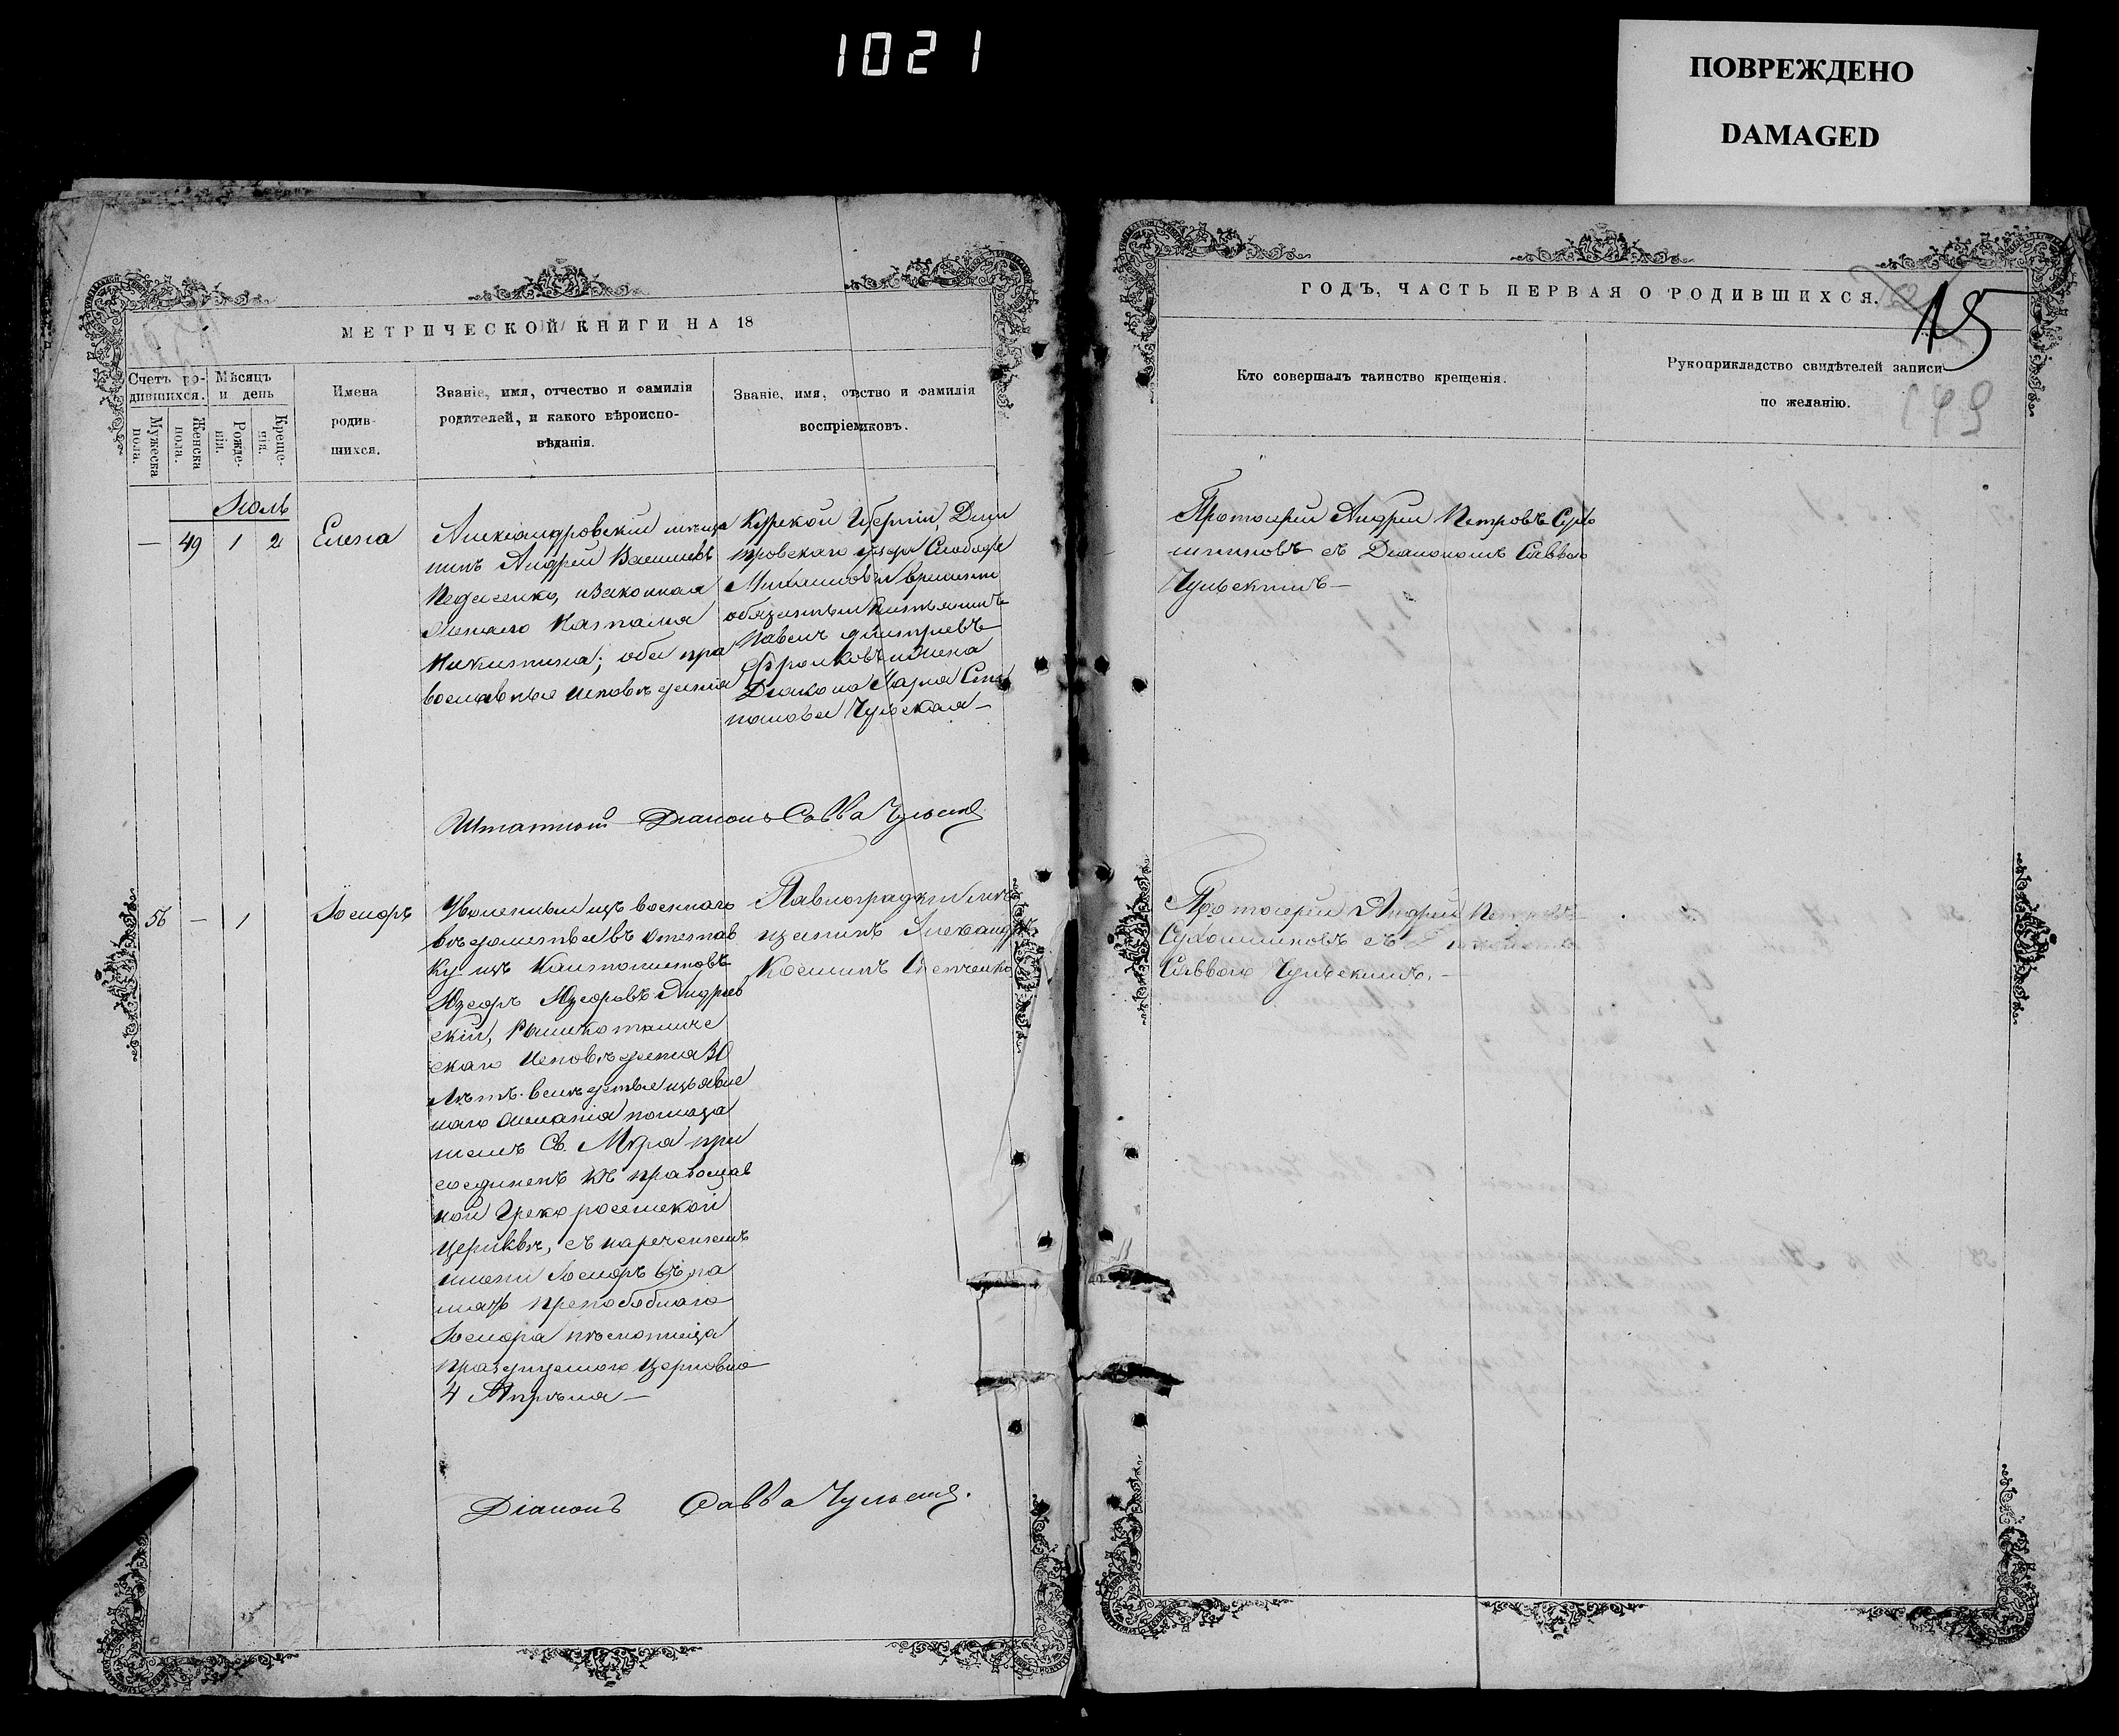 1021
ПОВРЕЖДЕНО
DAMAGED
МЕТРИЧЕСКОЙ КНИГИ НА 18
Счетъ ро-
дившихся.
Мужеска
пола.
Женска
пола.
Мѣсяцъ
и день
Рожде-
нія.
Креще-
нія.
Имена
родив-
шихся.
Званіе, имя, отчество и фамилія
родителей, и какого вѣроиспо-
вѣданія.
Званіе, имя, отство и фамилія
воспріемиковъ.
Іюль
— 49 1 2
Елена
Александровскій мѣща
нинъ Андрей Васильевъ
Педасенко, и законная
Жена его Наталия
Никитина; оба пра
вославные исповѣдания
Курской Губерніи, Дми
тровскаго уезда Слободы
Михайловки временно
обязанный
Павелъ Димтриевъ
Фроловъ и Жена
Диакона Мария Сте
панова Чульская —
Штатный Діаконъ Савва Чульскій
56 — 1
Іосифъ
Уволенный изъ военнаго
вѣдомства въ отстав
ку изъ Кантонистовъ
Юзефъ Юзефовъ Андрѣев
скій, Римкотоличе
скаго Исповѣдания 30
Лѣтъ. вслѣдствие изъявле
наго желания помаза
ниемъ Св. Мѵра при
соединенъ къ православ
ной Греко россиской
Церквѣ, съ наречениемъ
имени Іосифъ въ па
мять преподобнаго
Іосифа пѣснописца
празднуемаго Церковью
4 Апрѣля —
Павлоградкий мѣ
щанинъ Александръ
Космин Степченко
Діаконъ Савва Чульскій.
ГОДЪ, ЧАСТЬ ПЕРВАЯ О РОДИВШИХСЯ.
15
149
Кто совершалъ таинство крещенія.
Рукоприкладство свидѣтелей записи
по желанію.
Протоиерей Андрей Петровъ Сухо
мlиновъ съ Диакономъ Саввою
Чульскимъ —
Протоиерей Андрей Петровъ
Сухомлиновъ съ
Саввою Чульскимъ. —